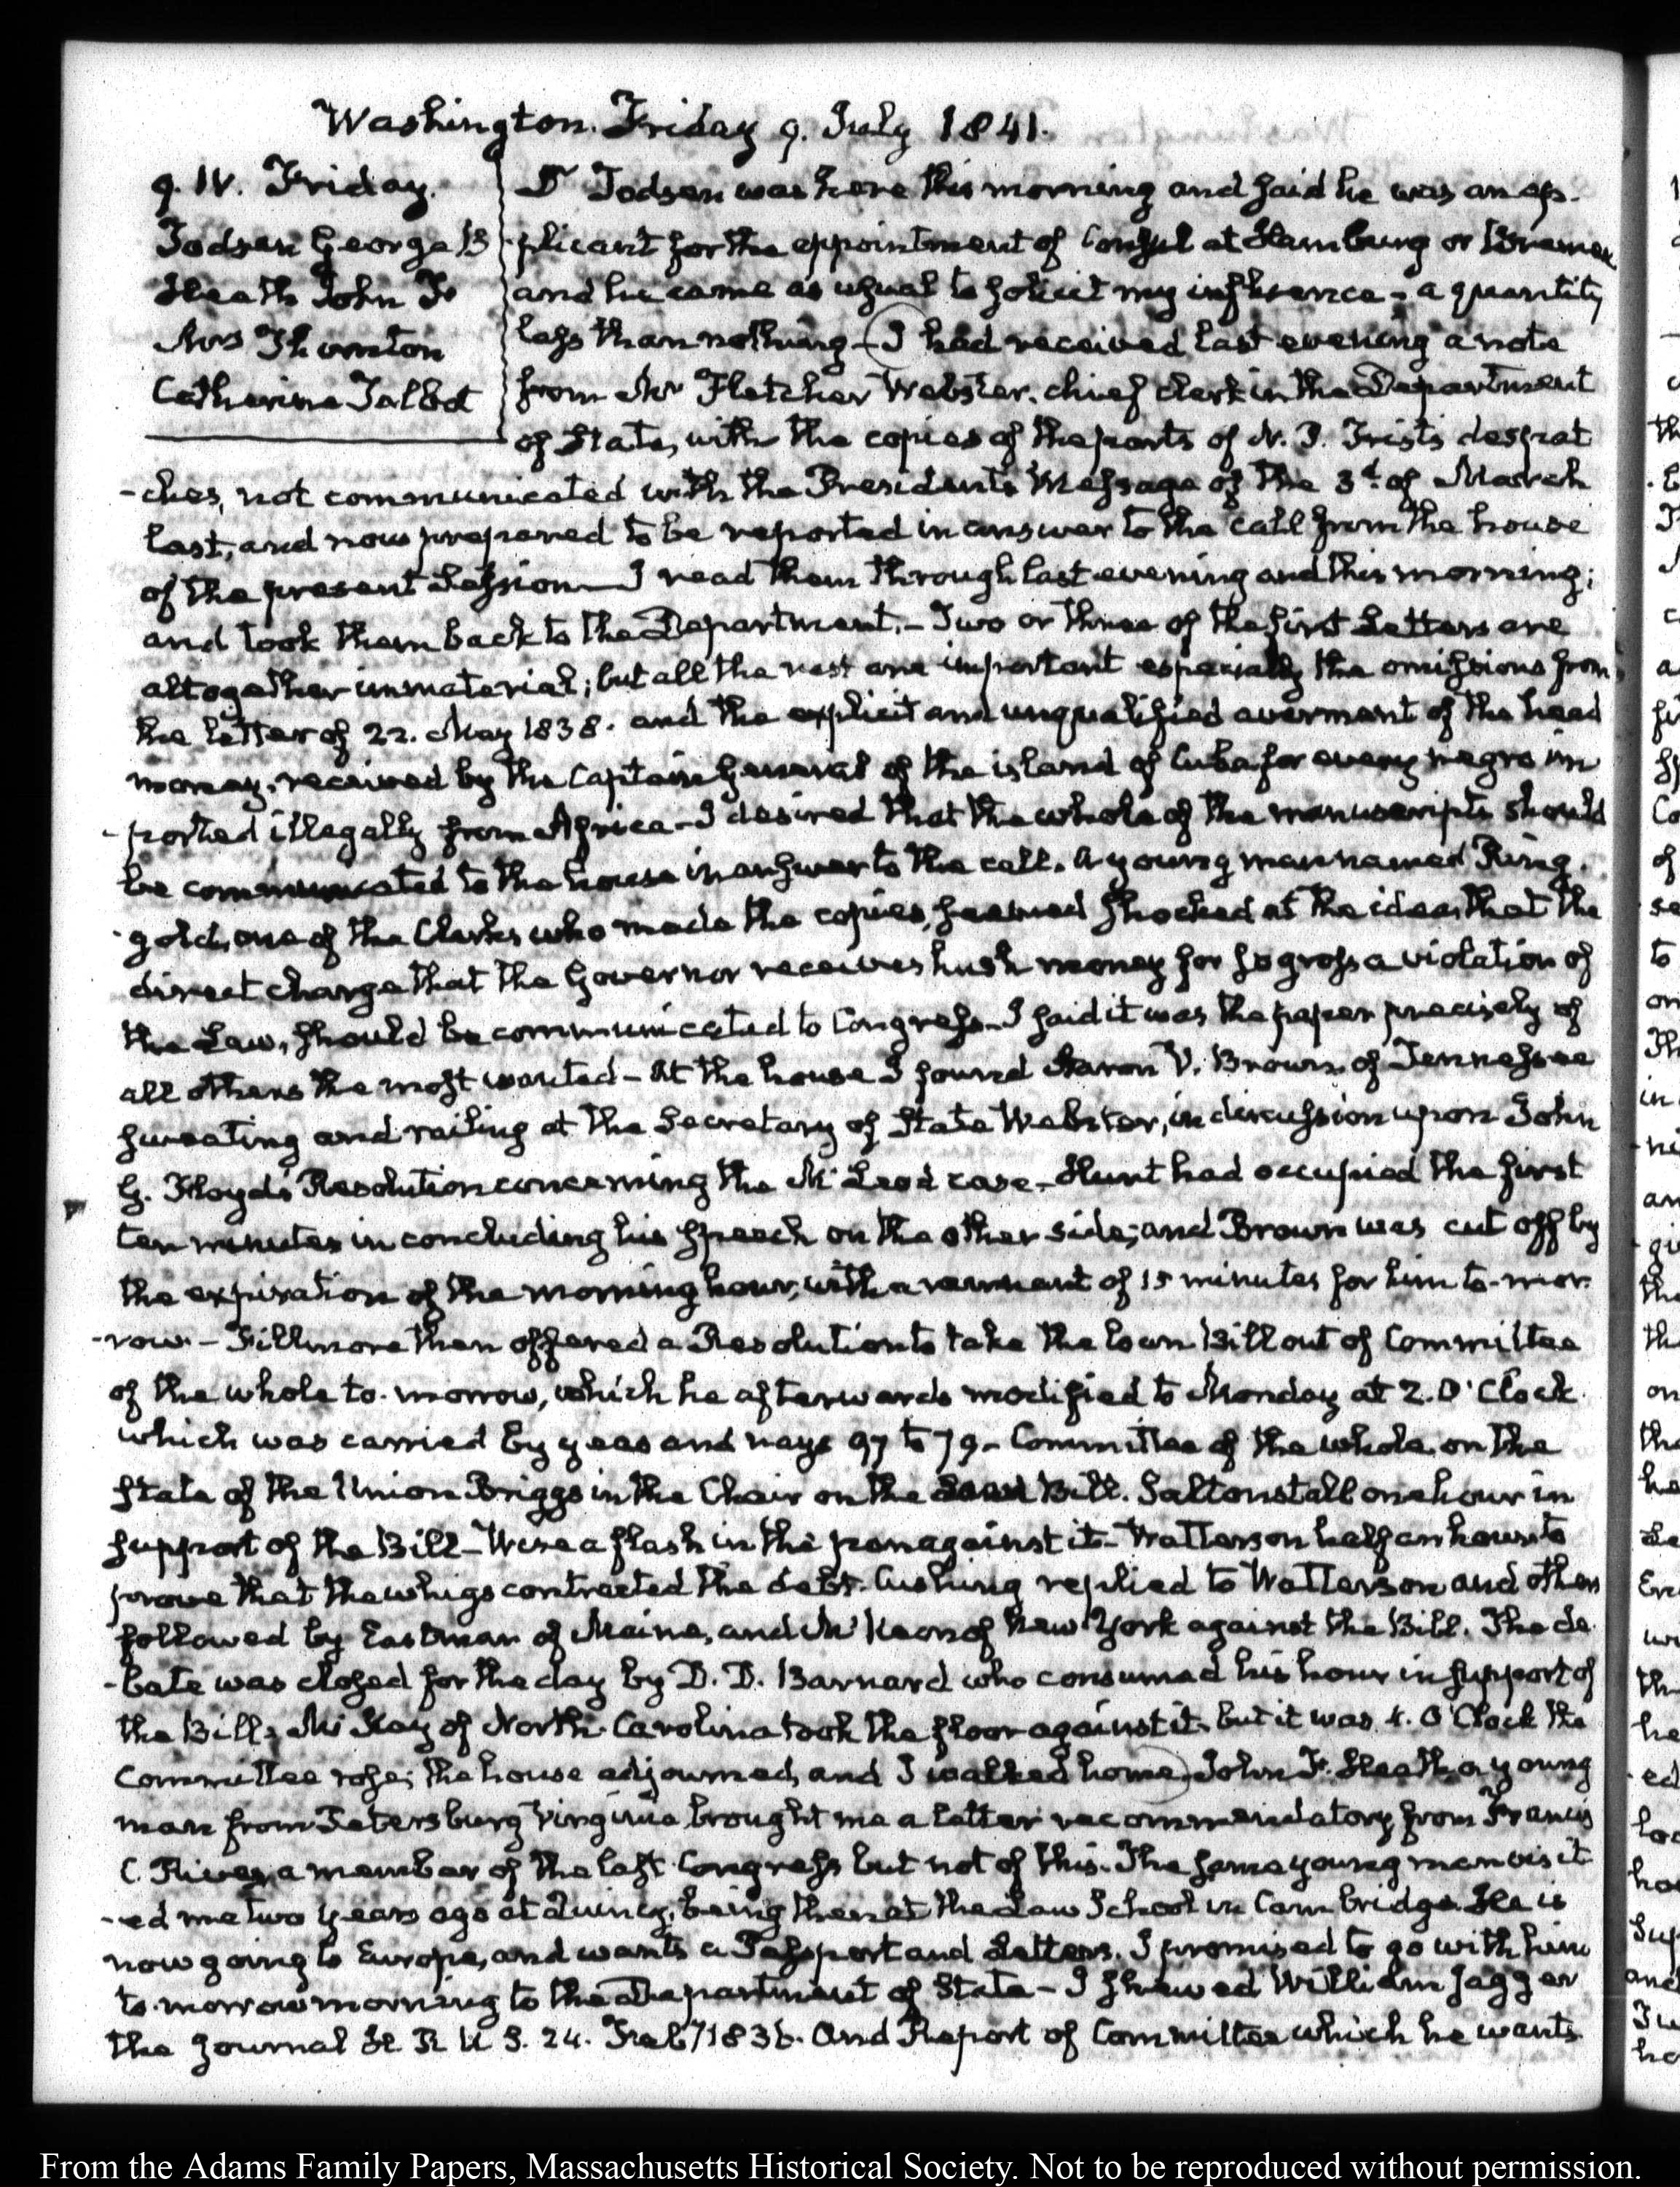 Washington. Friday 9. July 1841.
9. IV. Friday.
Todsen George B
Heath John F.
Mrs Thornton
Catherine Talbot
Dr Todsen was here this morning and said he was an ap-
-plicant for the appointment of Consul at Hamburg or Bremen
and he came as usual to solicit my influence - a quantity
less than nothing - I had received last evening a note
from Mr Fletcher Webster, chief clerk in the Department
of State, with the copies of the parts of N. P. Trist's despat
-ches, not communicated with the President's Message of the 3d. of March
last, and now prepared to be reported in answer to the call from the house
of the present Session — I read them through last evening and this morning;
and took them back to the Department. - Two or three of the first Letters are
altogether immaterial; but all the rest are important especially the omissions from
the letter of 22. May 1838. and the explicit and unqualified averment of the head
money, received by the Captain General of the island of Cuba for every negro im
-ported illegally from Africa - I desired that the whole of the manuscripts should
be communicated to the house in answer to the call. A young man named Ring-
-gold, one of the Clerks who made the copies, seemed shocked at the idea, that the
direct charge that the Governor receives hush money for so gross a violation of
the Law, should be communicated to Congress - I said it was the paper precisely of
all others the most wanted - At the house I found Aaron V. Brown of Tennessee
sweating and railing at the Secretary of State Webster, in discussion upon John
G. Floyd's Resolution concerning the McLeod case - Hunt had occupied the first
ten minutes in concluding his speech on the other side; and Brown was cut off by
the expiration of the morning hour, with a remnant of 15 minutes for him to-mor-
-row - Fillmore then offered a Resolution to take the loan Bill out of Committee
of the whole to-morrow, which he afterwards modified to Monday at 2. O'Clock
which was carried by yeas and nays 97 to 79 - Committee of the whole on the
State of the Union Briggs in the Chair on the Loan Bill. Saltonstall one hour in
support of the Bill - Wise a flash in the pan against it - Watterson half an hour to
prove that the whigs contracted the debt. Cushing replied to Watterson and others
followed by Eastman of Maine, and McKeon of New York against the Bill. The de-
-bate was closed for the day by D. D. Barnard who consumed his hour in support of
the Bill; McKay of North-Carolina took the floor against it, but it was 4. O'Clock the
Committee rose; the house adjourned, and I walked home, John F. Heath a young
man from Petersburg Virginia brought me a letter recommendatory from Francis
C. Rives, a member of the last Congress but not of this. The same young man visit
-ed me two years ago at Quincy, being then at the Law School in Cambridge. He is
now going to Europe, and wants a Passport and Letters. I promised to go with him
to-morrow morning to the Department of State - I shewed William Jagger
the Journal H. R. U S. 24. Feb 1836. And Report of Committee which he wants.
From the Adams Family Papers, Massachusetts Historical Society. Not to be reproduced without permission.